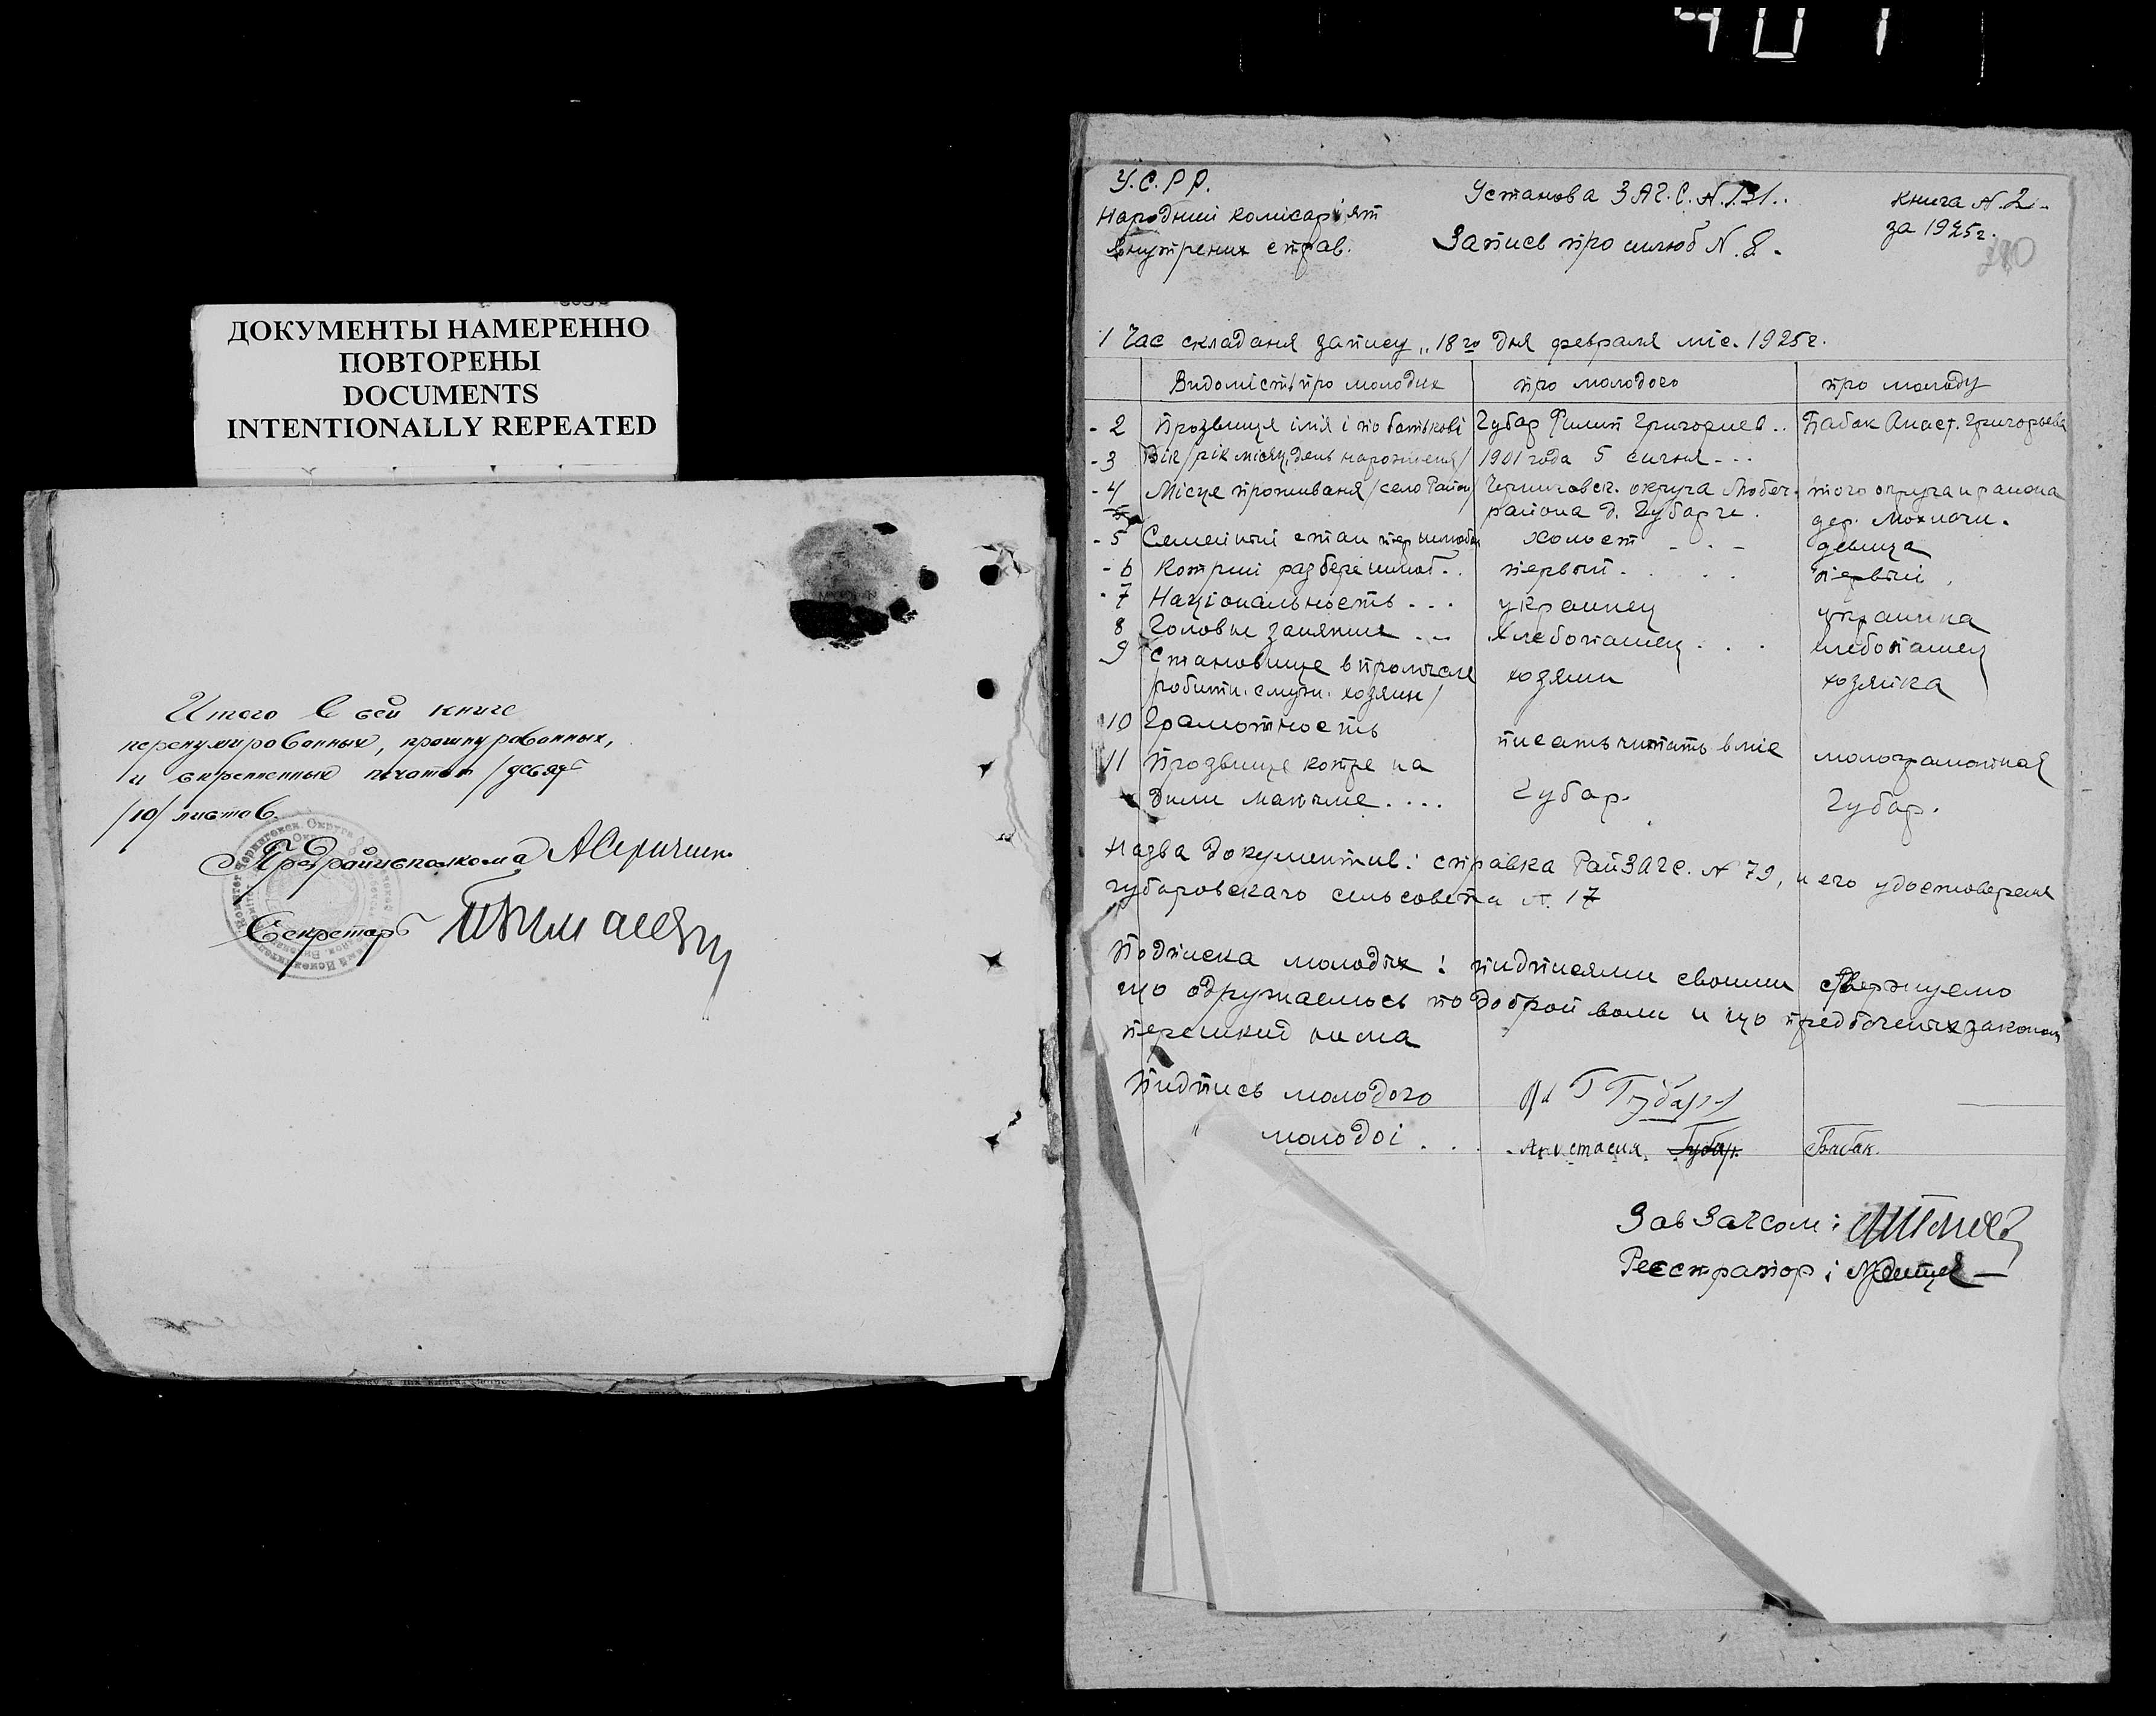 401
ДОКУМЕНТЫ НАМЕРЕННО
ПОВТОРЕНЫ
DOCUMENTS
INTENTIONALLY REPEATED
Итого в сей книге
перенумерованных, прошнурованных,
и скрепленных печатью
/10/ листов.
Предрайисполкома
Секретарь
У.С.Р.Р.
Народний комісаріят
внутрених справ.
Установа ЗАГ.С. N.131..
Запись про шлюб N. 8.
книга N. 2.
за 1925г.
1 Час складаня запису „18го дня февраля міс. 1925г.
Видомість про молодих про молодого про молоду
2 Прозвище імя і по батькові Губар Филип Григориев.. Бабак Анаст. Григорьева
3 Вік /рік місяц, день нарожденя/ 1901 года 5 сичня
4 Місце проживаня /село Район/ Черниговск. округа Любеч. того округа и района
района д. Губарче. дер. Мохначи.
5 Семейний стан пер шлюбом холост девица
6 Котрий раз бере шлюб.. первый. первый
7 Націоналность... украинец украинка
8 Головне заняние хлебопашец... хлебопашец
9 Становище в промысле хозяин хозяйка
робитн. служ. хозяин/
10 Грамотность писать читать вміе малограмотная
11 Прозвище котре на
дали макчме.... Губар. Губар.
Назва документив: справка РайЗАГС. N 79, и его удостоверения
Губаровскаго сельсовета N. 17
Подписка молодых: пидписями своими ствержуемо
що одружаемось по доброй воли и що предбаченых законом
перешкид нима
Пидпись молодого Губар
" молодоі... Анастасия Губар. Бабак.
Зав Загсом:
Реестратор: